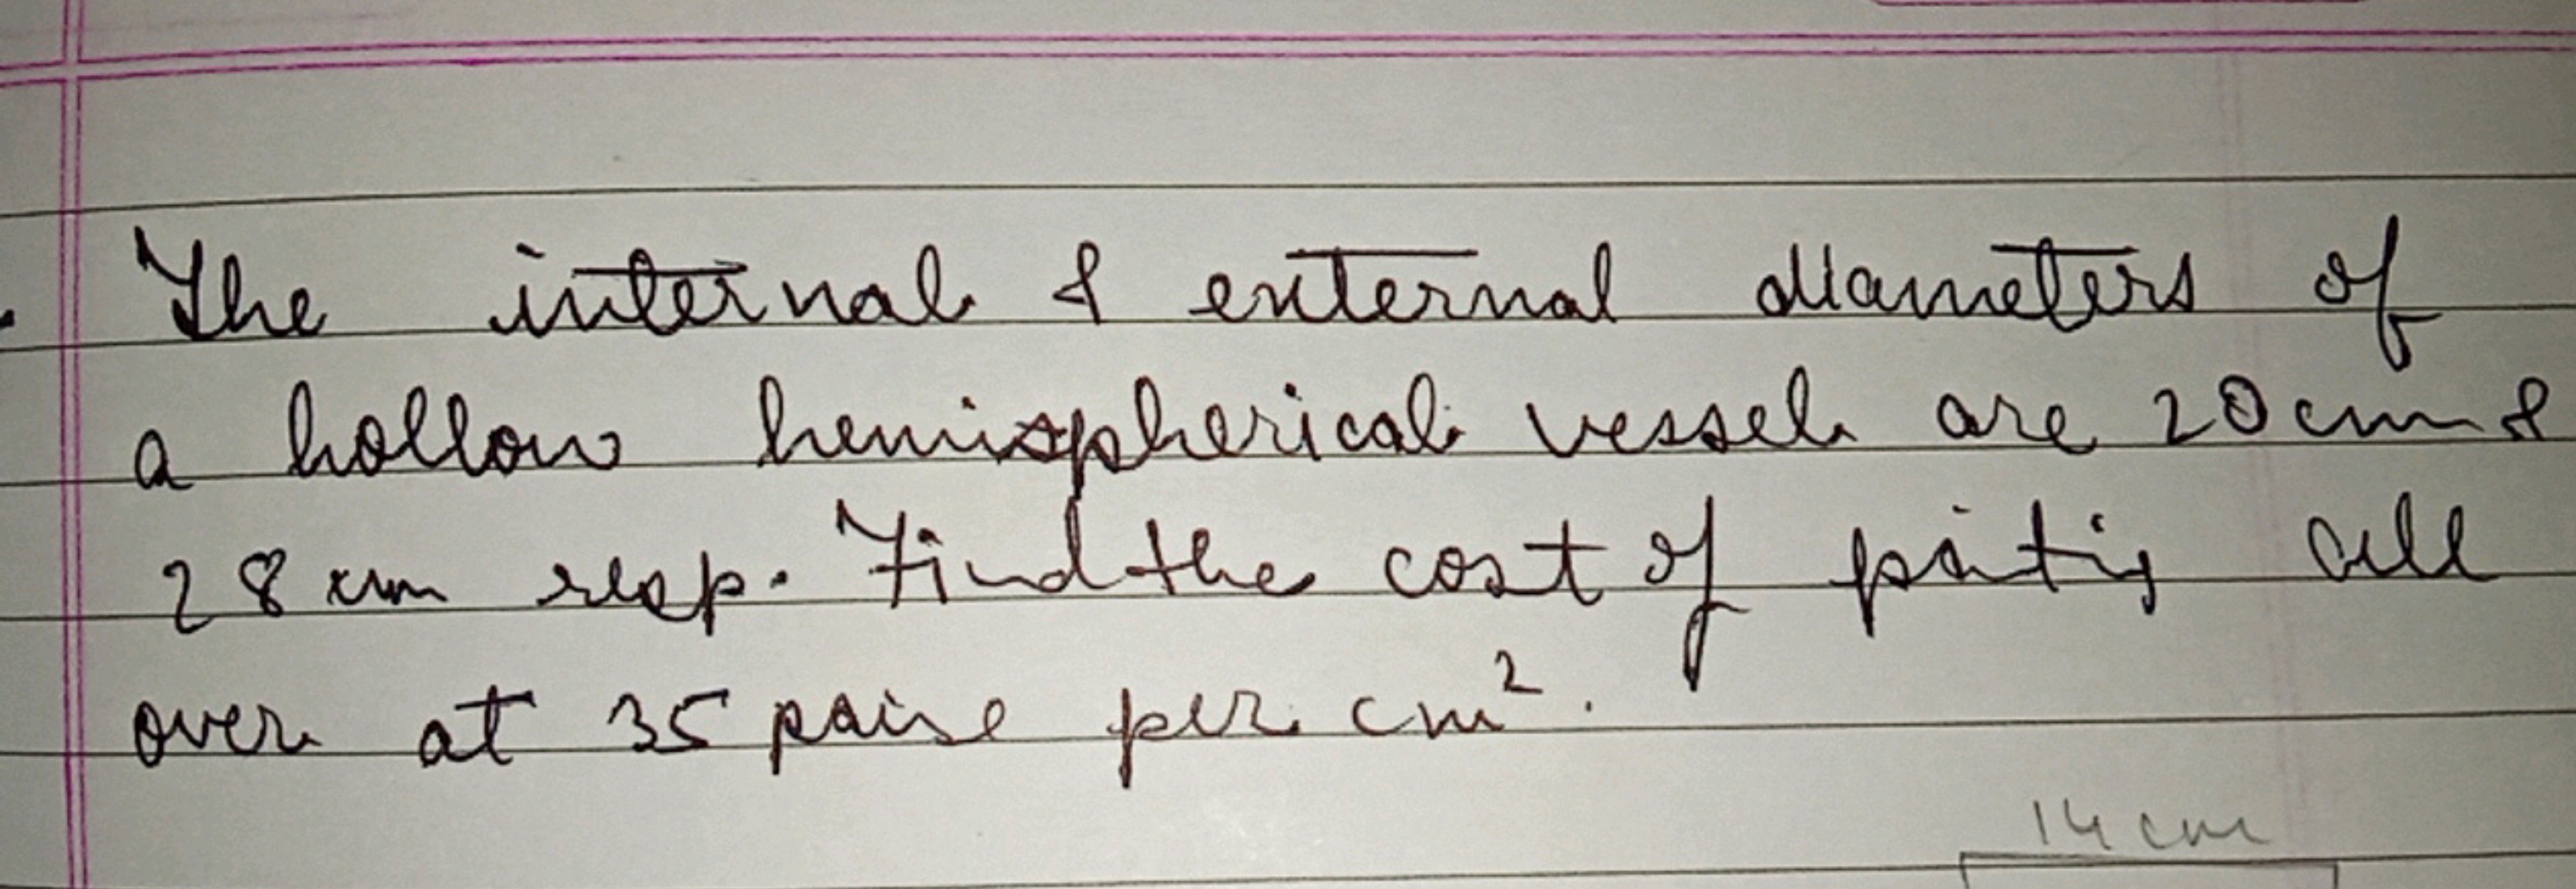 The internal & external diameters of
a hollow hemispherical vessel are 20cm &
28 cm resp. Find the cost of patig all
over at 35 paise per cm².
14 cm